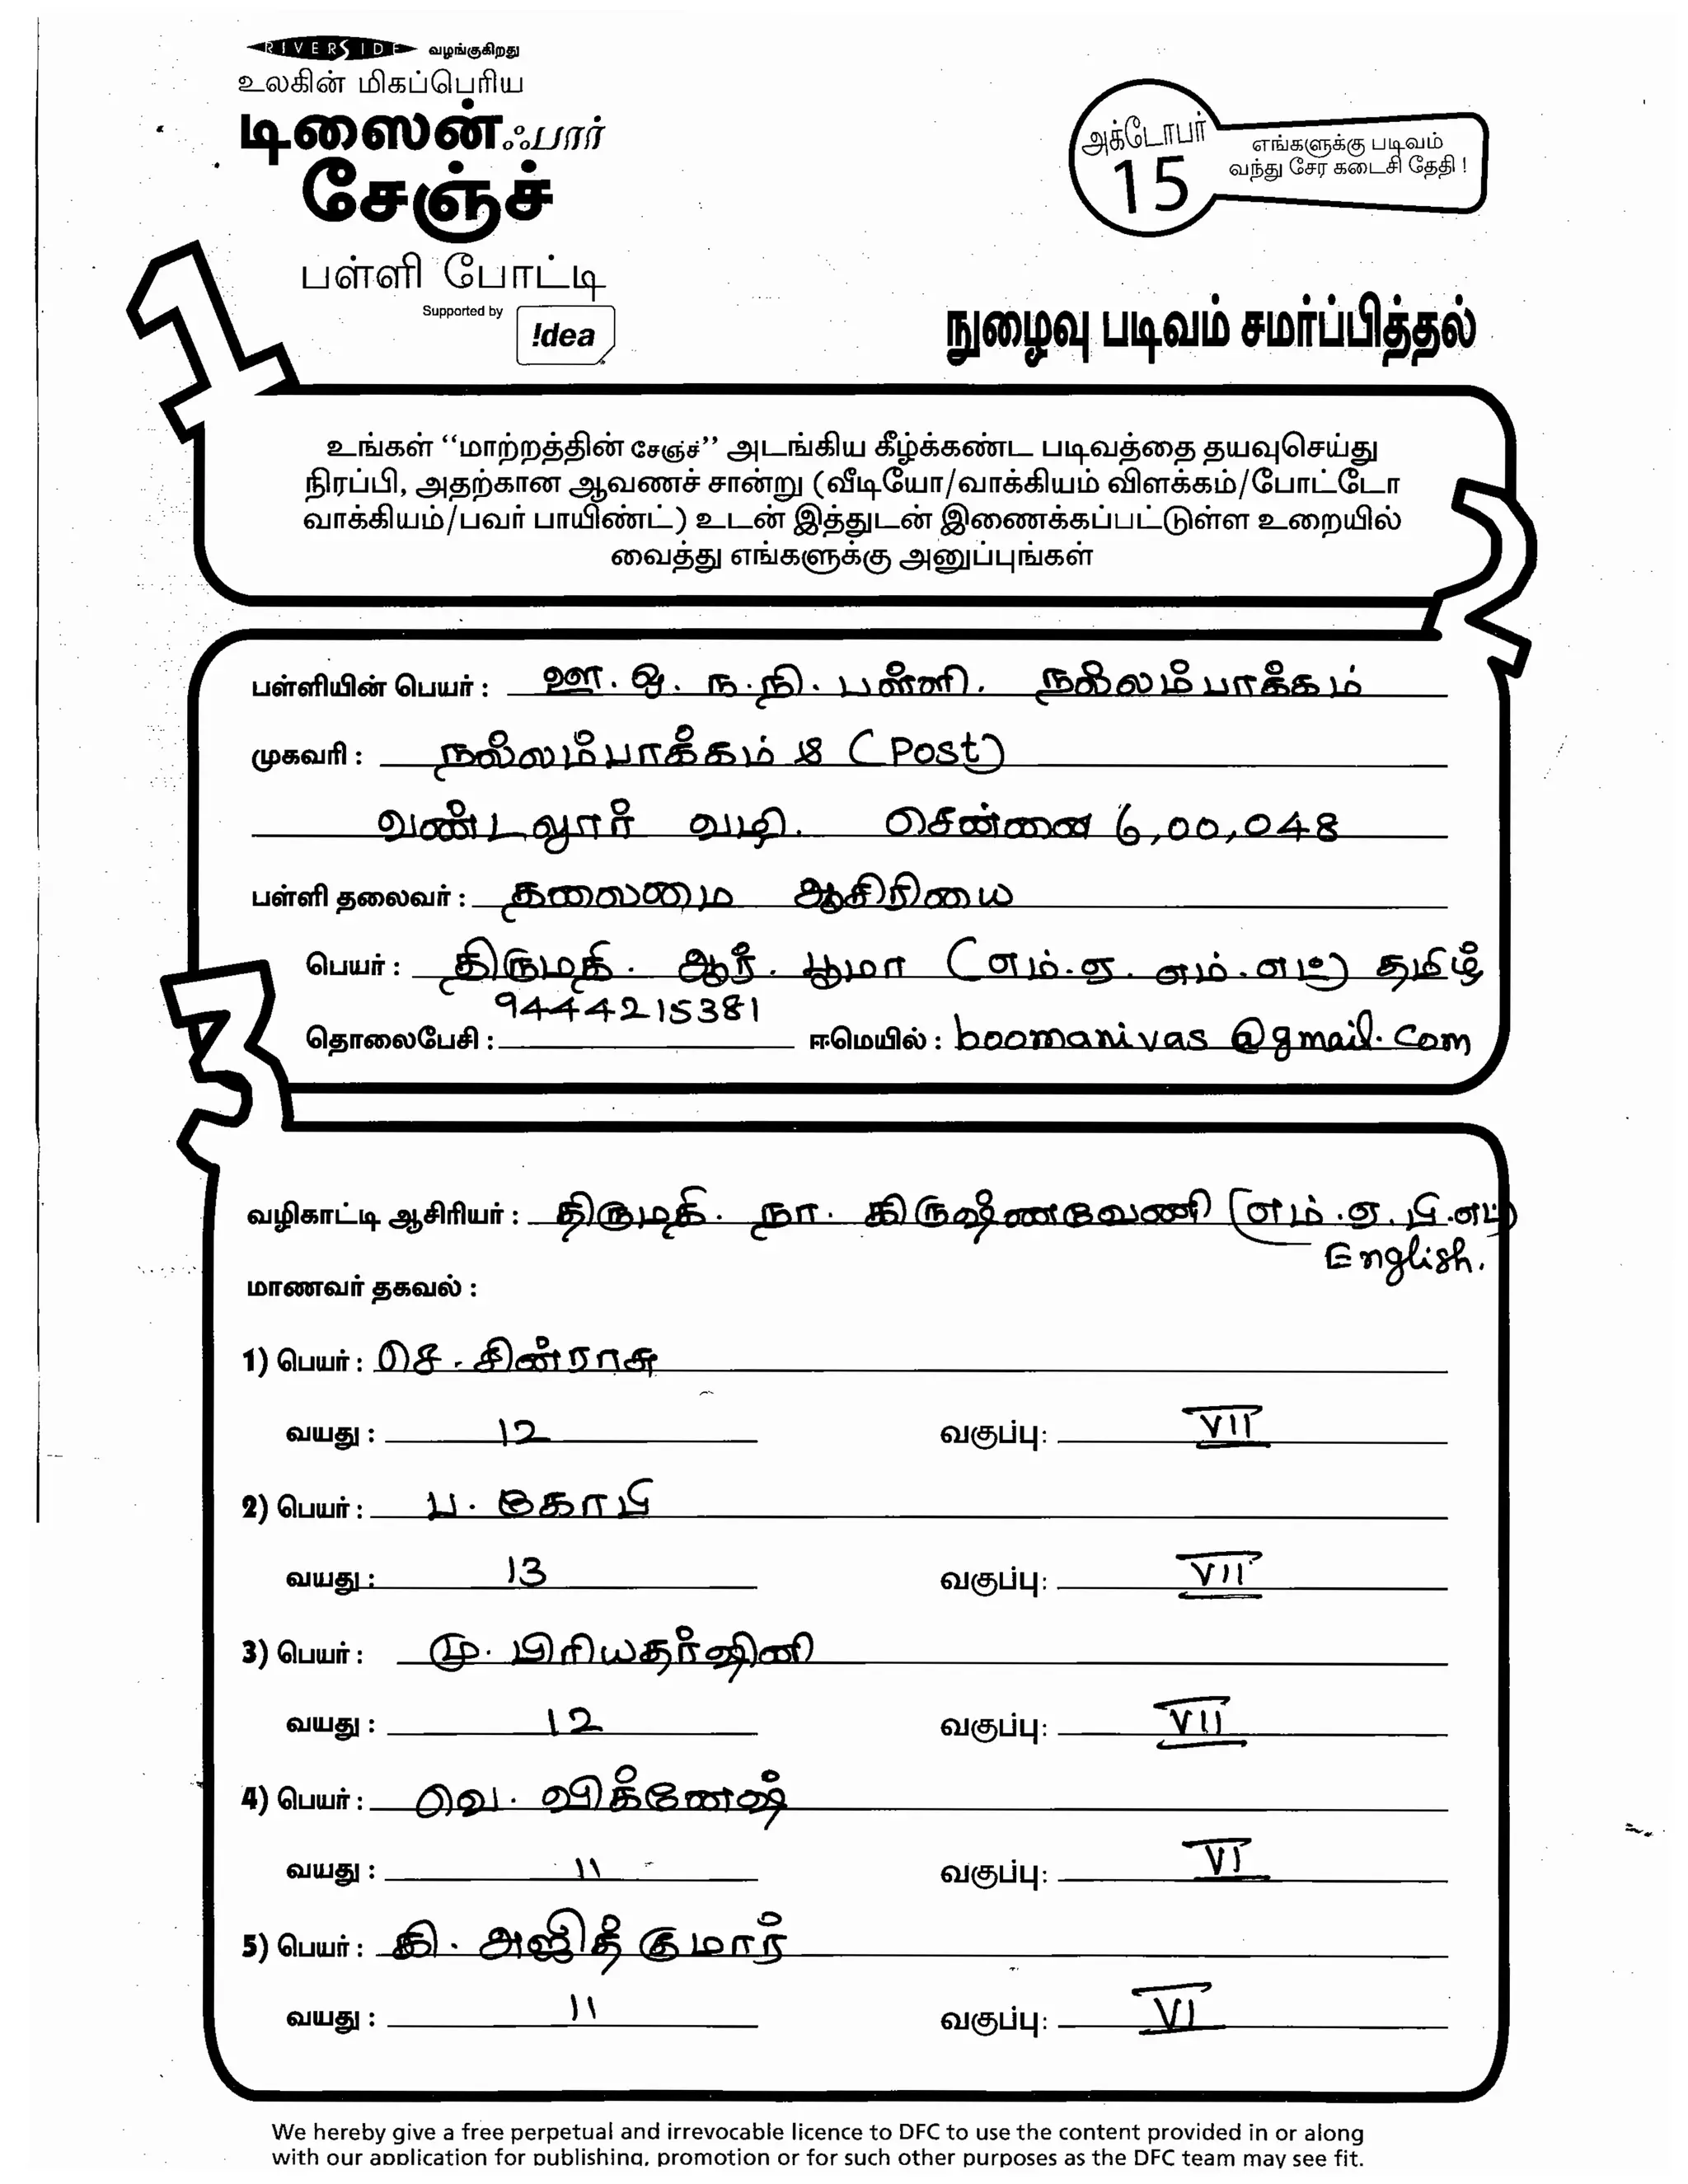 RIVERSIDE வழங்குகிறது
உலகின் மிகப்பெரிய
டிஸைன் ஃபார்
சேஞ்ச்
பள்ளி போட்டி
Supported by !dea
அக்டோபர்
15
எங்களுக்கு படிவம்
வந்து சேர கடைசி தேதி !
நுழைவு படிவம் சமர்ப்பித்தல்
1
உங்கள் “மாற்றத்தின் சேஞ்ச்” அடங்கிய கீழ்க்கண்ட படிவத்தை தயவுசெய்து
நிரப்பி, அதற்கான ஆவணச் சான்று (வீடியோ/வாக்கியம் விளக்கம்/போட்டோ
வாக்கியம்/பவர் பாயிண்ட்) உடன் இத்துடன் இணைக்கப்பட்டுள்ள உறையில்
வைத்து எங்களுக்கு அனுப்புங்கள்
2
பள்ளியின் பெயர் : ஊ. ஒ. ந. நி. பள்ளி. நல்லம்பாக்கம்
முகவரி : நல்லம்பாக்கம் & (Post)
வண்டலூர் வழி. சென்னை 6,00,048
பள்ளி தலைவர் : தலைமை ஆசிரியை
பெயர் : திருமதி. ஆர். பூமா (எம்.ஏ. எம்.எட்) தமிழ்
தொலைபேசி : 9444215381 ஈமெயில் : boomanivas@gmail.com
3
வழிகாட்டி ஆசிரியர் : திருமதி. நா. கிருஷ்ணவேணி (எம்.ஏ. பி.எட்)
English.
மாணவர் தகவல் :
1) பெயர் : செ. சின்ராசு
வயது : 12 வகுப்பு: VII
2) பெயர் : ப. கோபி
வயது : 13 வகுப்பு: VII
3) பெயர் : மு. பிரியதர்ஷினி
வயது : 12 வகுப்பு: VII
4) பெயர் : வெ. விக்னேஷ்
வயது : 11 வகுப்பு: VI
5) பெயர் : கி. அஜித் குமார்
வயது : 11 வகுப்பு: VI
We hereby give a free perpetual and irrevocable licence to DFC to use the content provided in or along
with our application for publishing, promotion or for such other purposes as the DFC team may see fit.